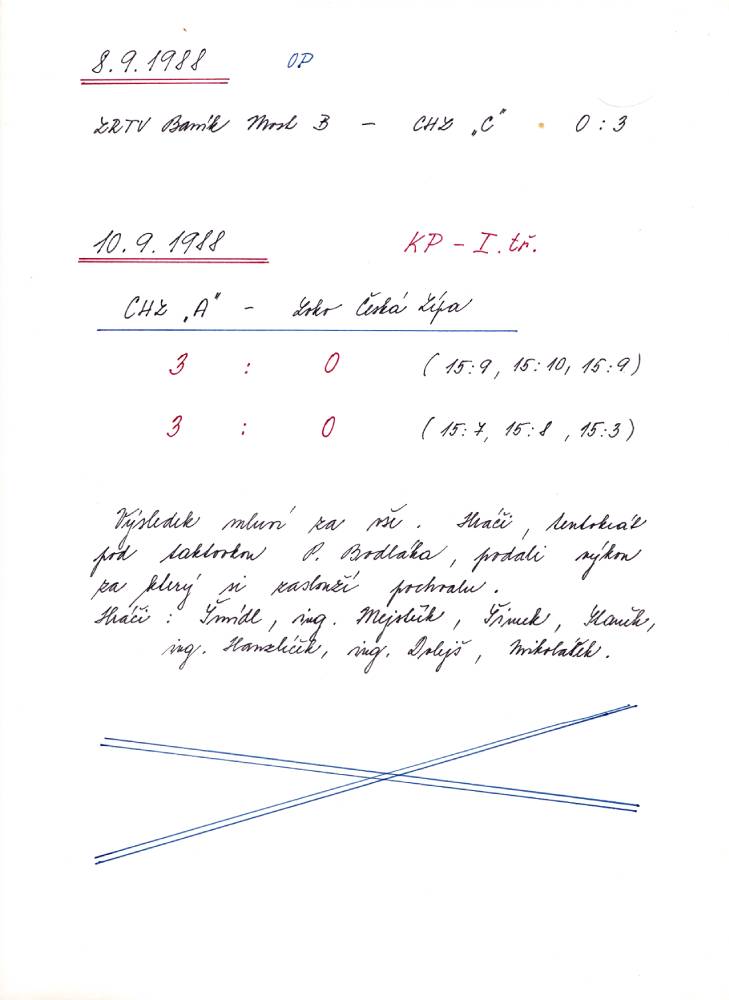 8.9.1988 OP
ZRTV Baník Most B - CHZ "C" 0:3
10.9.1988 KP - I. tř.
CHZ „A" - Loko Česká Lípa
3 : 0 (15:9, 15:10, 15:9)
3 : 0 (15:7, 15:8, 15:3)
Výsledek mluví za vše. Hráči, tentokrát
pod taktovkou P. Bodláka, podali výkon
za který si zaslouží pochvalu.
Hráči: Šmídl, ing. Mejstřík, Šimek, Staněk,
ing. Hanzlíček, ing. Dolejš, Mikolášek.